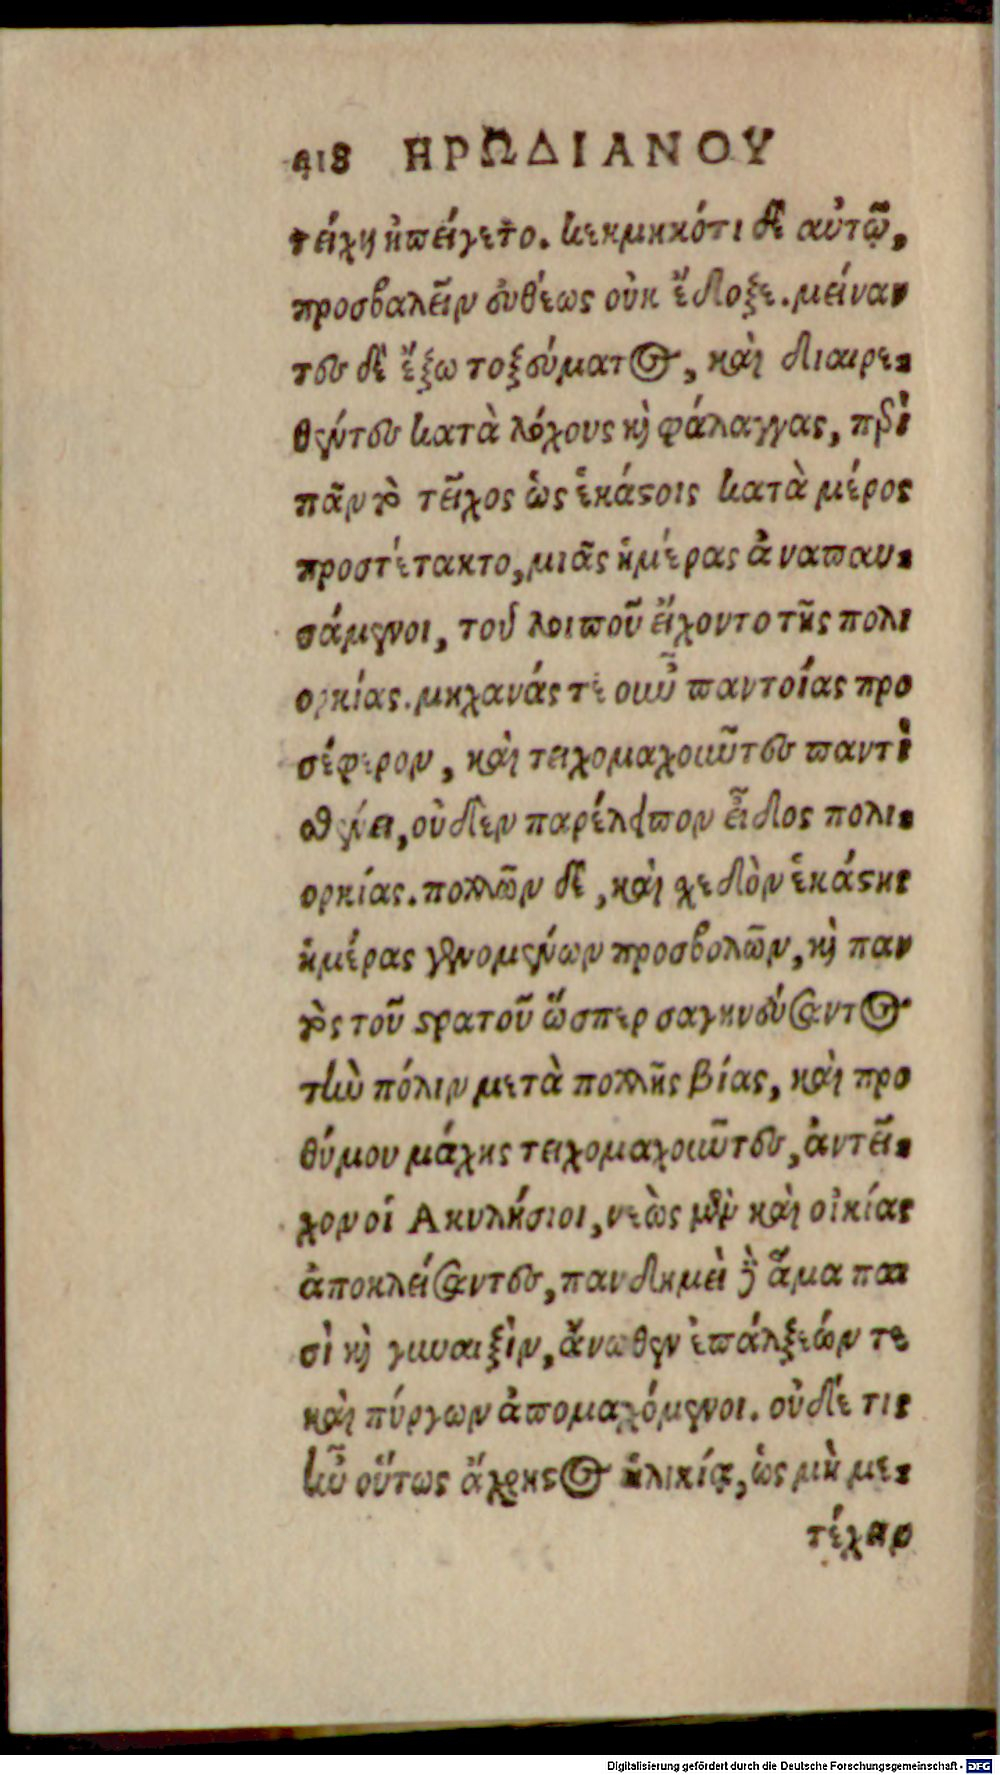 418 ΗΡΩΔΙΑΝΟΥ
τείχη ἠπείγετο. κεκμηκότι δὲ αὐτῷ,
προσβαλεῖν εὐθέως οὐκ ἔδοξε. μείναν
τες δὲ ἔξω τοξεύματος, καὶ διαιρε-
θέντες κατὰ λόχους καὶ φάλαγγας, περὶ
πᾶν τὸ τεῖχος ὡς ἑκάστοις κατὰ μέρος
προστέτακτο, μιᾶς ἡμέρας ἀναπαυ-
σάμενοι, τοῦ λοιποῦ εἴχοντο τῆς πολι
ορκίας. μηχανάς τε οὖν παντοίας προ
σέφερον, καὶ τειχομαχοῦντες παντὶ
σθένει, οὐδὲν παρέλειπον εἶδος πολι-
ορκίας. πολλῶν δὲ, καὶ σχεδὸν ἑκάστης
ἡμέρας γενομένων προσβολῶν, καὶ παν
τὸς τοῦ στρατοῦ ὥσπερ σαγηνεύσαντος
τὴν πόλιν μετὰ πολλῆς βίας, καὶ προ
θύμου μάχης τειχομαχοῦντες, ἀντεῖ-
χον οἱ Ακυλήσιοι, νεὼς μὲν καὶ οἰκίας
ἀποκλείσαντες, πανδημεὶ δὲ ἅμα παι
σὶ καὶ γυναιξὶν, ἄνωθεν ἐπάλξεών τε
καὶ πύργων ἀπομαχόμενοι. οὐδέ τις
ἦν οὕτως ἄχρηστος ἡλικία, ὡς μὴ με-
τέχειν
Digitalisierung gefördert durch die Deutsche Forschungsgemeinschaft - DFG